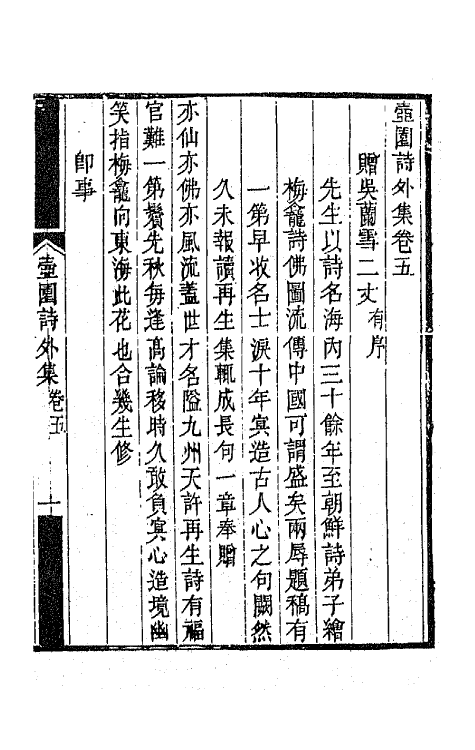 壺園詩外集卷五
贈吳蘭雪二丈有序
先生以詩名海內三十餘年至朝鮮詩弟子繪
梅龕詩佛圖流傳中國可謂盛矣兩辱題稿有
一第早收名士淚十年冥造古人心之句闕然
久未報讀再生集輒成長句一章奉贈
亦仙亦佛亦風流蓋世才名隘九州天許再生詩有福
官難一第鬢先秋每逢高論移時久敢負冥心造境幽
笑指梅龕向東海此花也合幾生修
卽事
壺園詩外集 卷五 一